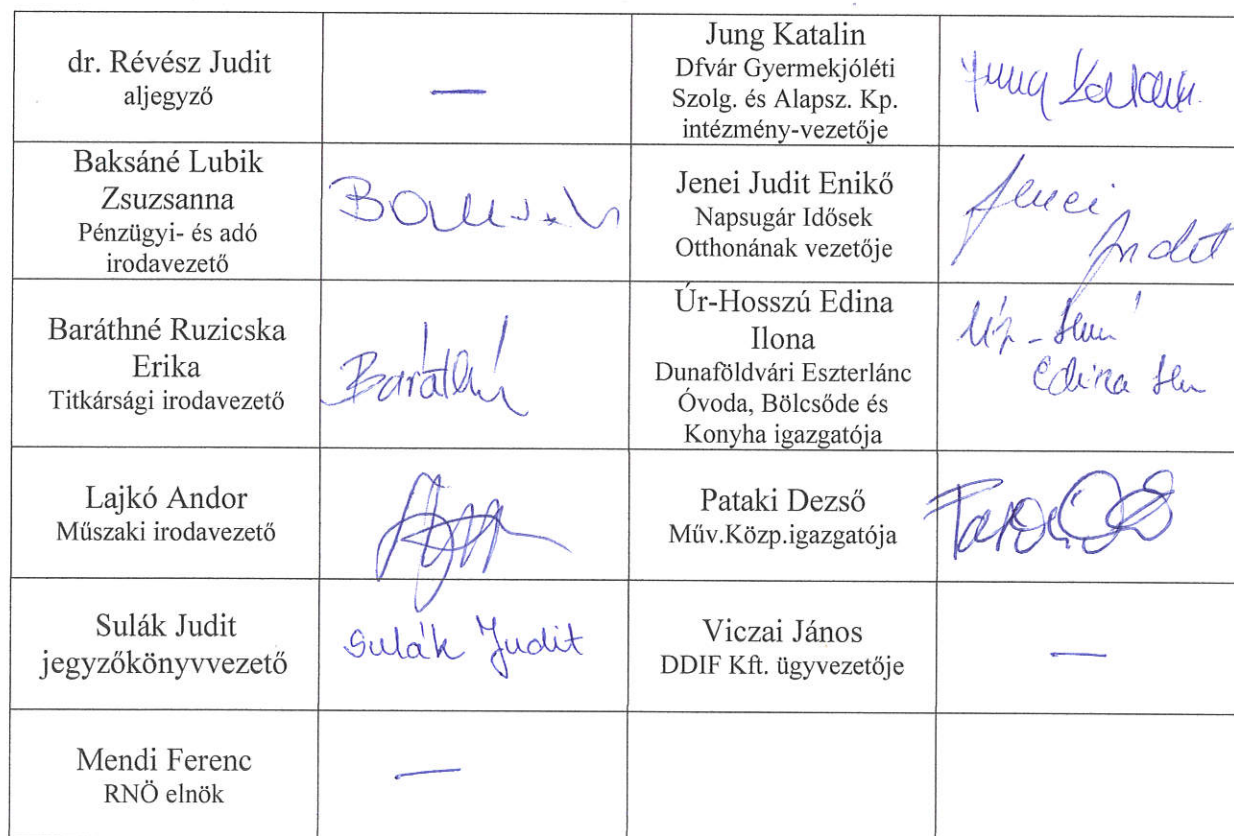 dr. Révész Judit
aljegyző
—
Jung Katalin
Dfvár Gyermekjóléti
Szolg. és Alapsz. Kp.
intézmény-vezetője
Jung Katalin
Baksáné Lubik
Zsuzsanna
Pénzügyi- és adó
irodavezető
Jenei Judit Enikő
Napsugár Idősek
Otthonának vezetője
Jenei
Judit
Baráthné Ruzicska
Erika
Titkársági irodavezető
Baráthné
Úr-Hosszú Edina
Ilona
Dunaföldvári Eszterlánc
Óvoda, Bölcsőde és
Konyha igazgatója
Edina
Lajkó Andor
Műszaki irodavezető
Pataki Dezső
Műv.Közp.igazgatója
Sulák Judit
jegyzőkönyvvezető
Sulák Judit
Viczai János
DDIF Kft. ügyvezetője
—
Mendi Ferenc
RNÖ elnök
—